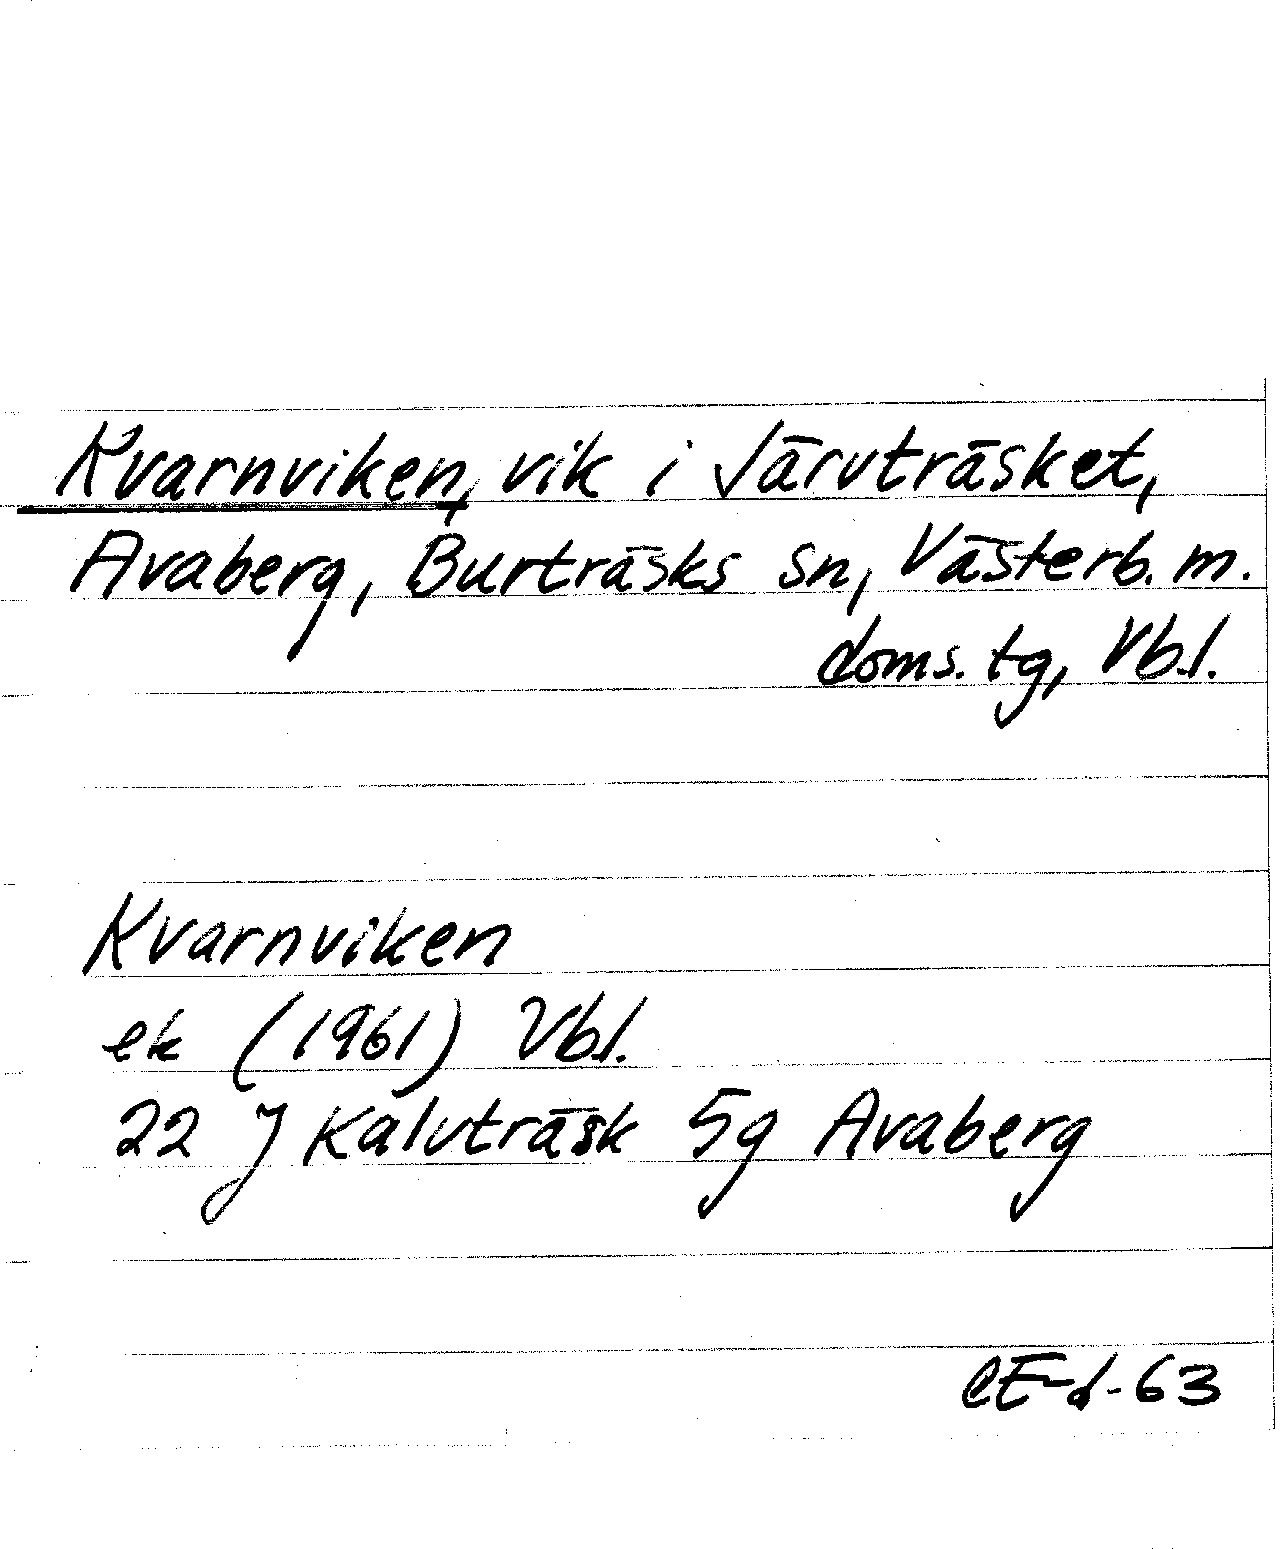 Kvarnviken, vik i Järvträsket,
Avaberg, Burträsks sn, Västerb. m.
doms. tg, Vb.l.
Kvarnviken
ek (1961) Vbl.
22 J Kalvträsk 5g Avaberg
CE-d-63